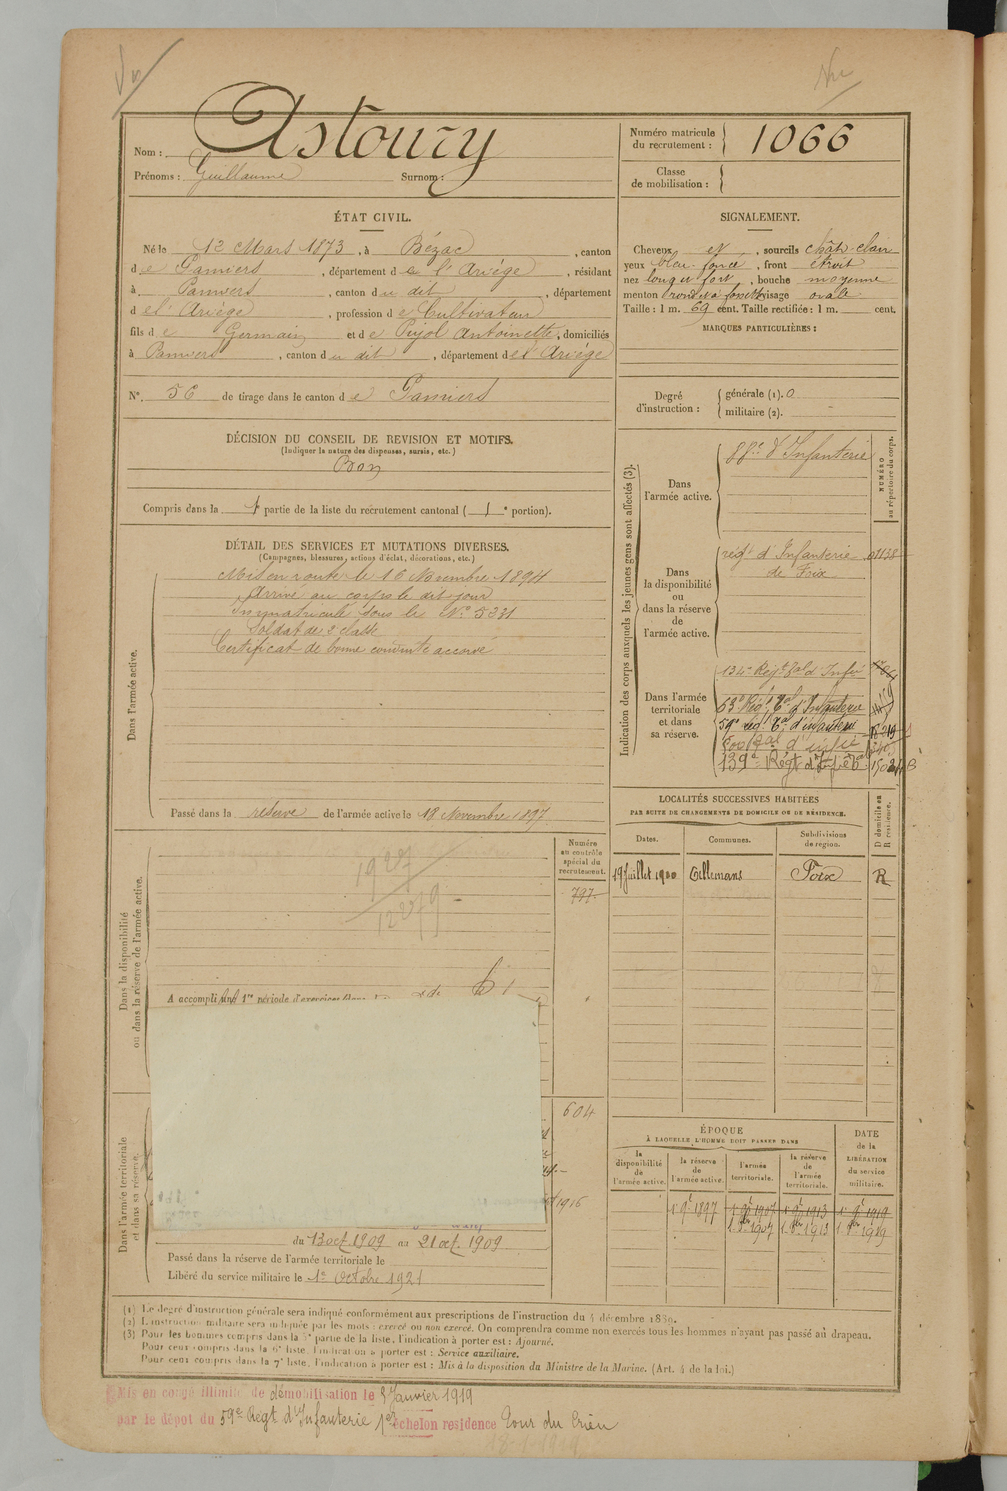 Vu
Vu
Nom : Astoury
Prénoms : Guillaume Surnom :
Numéro matricule du recrutement : 1066
Classe de mobilisation :
ÉTAT CIVIL.
Né le 12 Mars 1873, à Bézac, canton
de Pamiers, département de l'Ariège, résidant
à Pamiers, canton du dit, département
de l'Ariège, profession de Cultivateur
fils de Germain et de Pujol Antoinette, domiciliés
à Pamiers, canton du dit, département de l'Ariège
N°. 56 de tirage dans le canton de Pamiers
SIGNALEMENT.
Cheveux et, sourcils chât. clair
yeux bleu foncé, front étroit
nez long et fort, bouche moyenne
menton rond et à fossette visage ovale
Taille : 1 m. 69 cent. Taille rectifiée : 1 m. cent.
MARQUES PARTICULIÈRES :
Degré d'instruction : générale (1). 0
militaire (2).
DÉCISION DU CONSEIL DE REVISION ET MOTIFS.
(Indiquer la nature des dispenses, sursis, etc.)
Bon
Compris dans la 1 partie de la liste du recrutement cantonal ( 1 e portion).
DÉTAIL DES SERVICES ET MUTATIONS DIVERSES.
(Campagnes, blessures, actions d'éclat, décorations, etc.)
Dans l'armée active.
Mis en route le 16 Novembre 1894
Arrivé au corps le dit jour
Immatriculé sous le N° 5331
Soldat de 2e classe
Certificat de bonne conduite accordé
Passé dans la réserve de l'armée active le 18 Novembre 1897
Indication des corps auxquels les jeunes gens sont affectés (3).
NUMÉRO au répertoire du corps.
Dans l'armée active.
88e d'Infanterie
Dans la disponibilité ou dans la réserve de l'armée active.
régt d'Infanterie 01138
de Foix
Dans l'armée territoriale et dans sa réserve.
134e Régt tal d'Infie
63e Régt Tal d'Infanterie
59e régt Tal d'infanterie
139e Régt d'Infie
LOCALITÉS SUCCESSIVES HABITÉES
PAR SUITE DE CHANGEMENTS DE DOMICILE OU DE RÉSIDENCE.
Dates. Communes. Subdivisions de région. D domicile ou R résidence.
19 Juillet 1900 Foix R
Dans la disponibilité ou dans la réserve de l'armée active.
Numéro au contrôle spécial du recrutement.
797
1927
A accompli une 1re période d'exercices dans
604
1916
Dans l'armée territoriale et dans sa réserve.
du 13 oct 1909 au 21 oct. 1909
Passé dans la réserve de l'armée territoriale le
Libéré du service militaire le 1er Octobre 1921
ÉPOQUE
À LAQUELLE L'HOMME DOIT PASSER DANS
la disponibilité de l'armée active. la réserve de l'armée active. l'armée territoriale. la réserve de l'armée territoriale.
DATE de la LIBÉRATION du service militaire.
1 9e 1897 1 9e 1907 1 9e 1913 1 9e 1919
1 8bre 1907 1 8bre 1913 1 8bre 1919
(1) Le degré d'instruction générale sera indiqué conformément aux prescriptions de l'instruction du 4 décembre 1889.
(2) L'instruction militaire sera indiquée par les mots : exercé ou non exercé. On comprendra comme non exercés tous les hommes n'ayant pas passé au drapeau.
(3) Pour les hommes compris dans la 5e partie de la liste, l'indication à porter est : Ajourné.
Pour ceux compris dans la 6e liste, l'indication à porter est : Service auxiliaire.
Pour ceux compris dans la 7e liste, l'indication à porter est : Mis à la disposition du Ministre de la Marine. (Art. 4 de la loi.)
Mis en congé illimité de démobilisation le 8 Janvier 1919
par le dépot du 59e Régt d'Infanterie 1er echelon residence Tour du Crieu